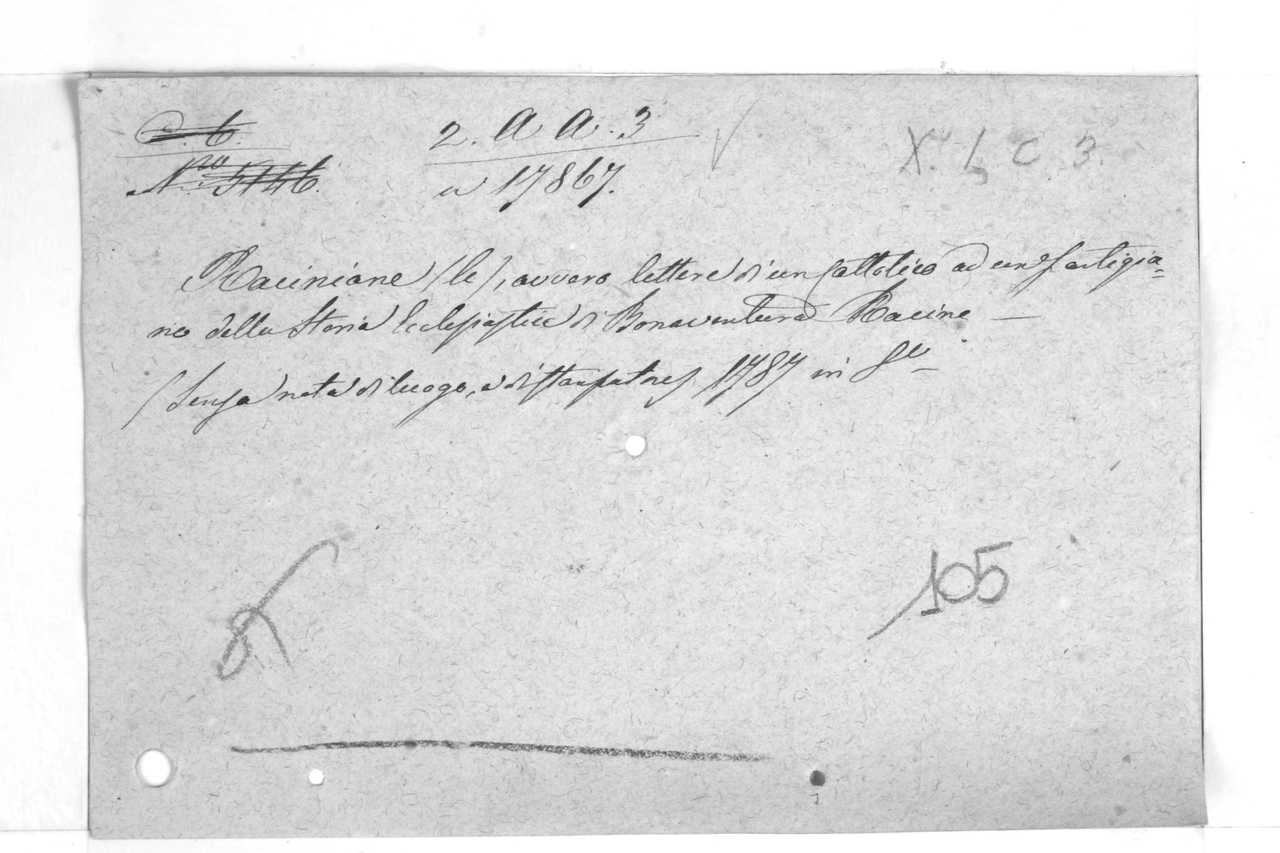 C. 6. 2. A A. 3 X. L, C 3.
N.ro 5446. a 17867.
Raciniane (le), ovvero lettere di un Cattolico ad un Partigia=
no della Storia Ecclesiastica di Bonaventura Racine —
(Senza nota di luogo, e di stampatore) 1787 in 8.vo
105